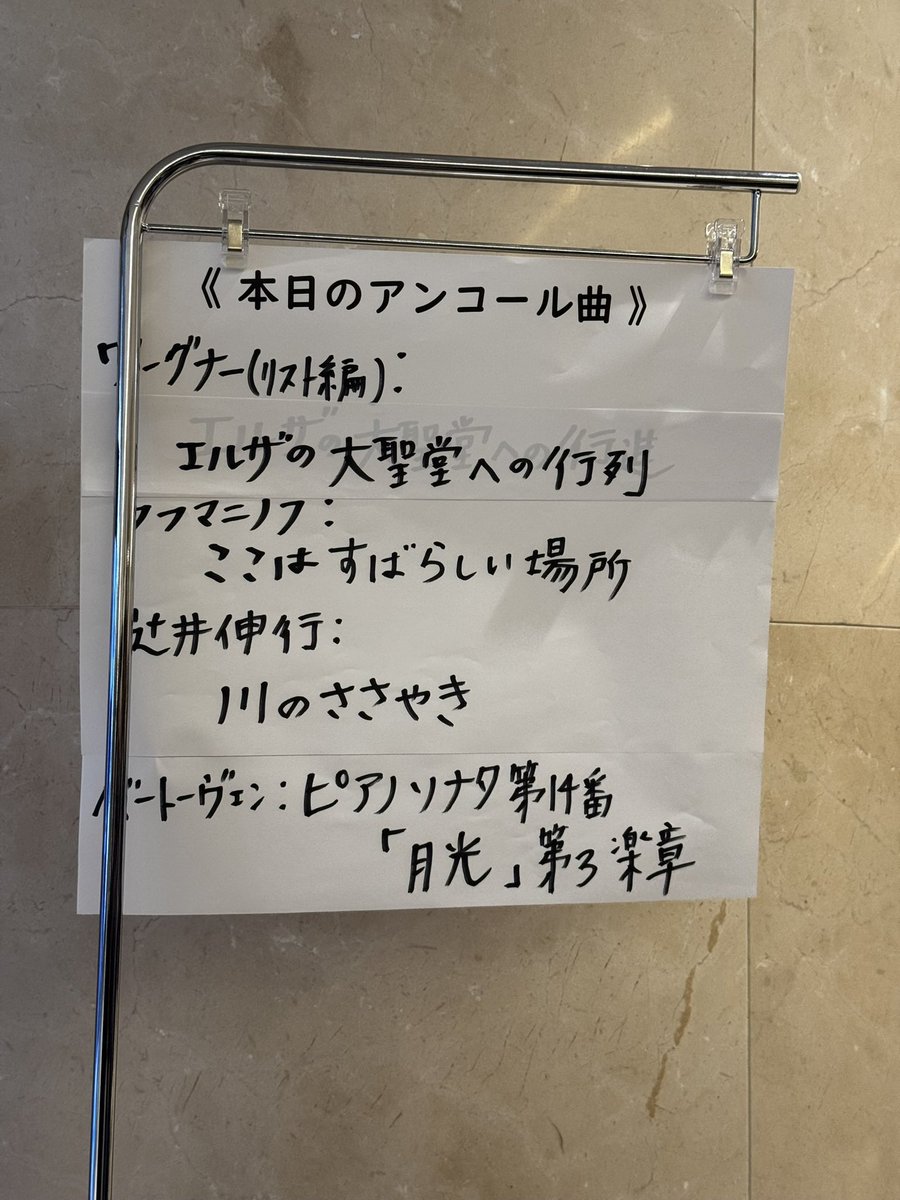 《 本日のアンコール曲 》
ワーグナー(リスト編):
エルザの大聖堂への行列
ラフマニノフ:
ここはすばらしい場所
辻井伸行:
川のささやき
ベートーヴェン:ピアノソナタ第14番
「月光」第3楽章